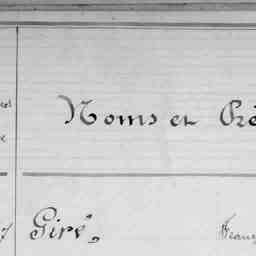 Noms et Pré
Giré.